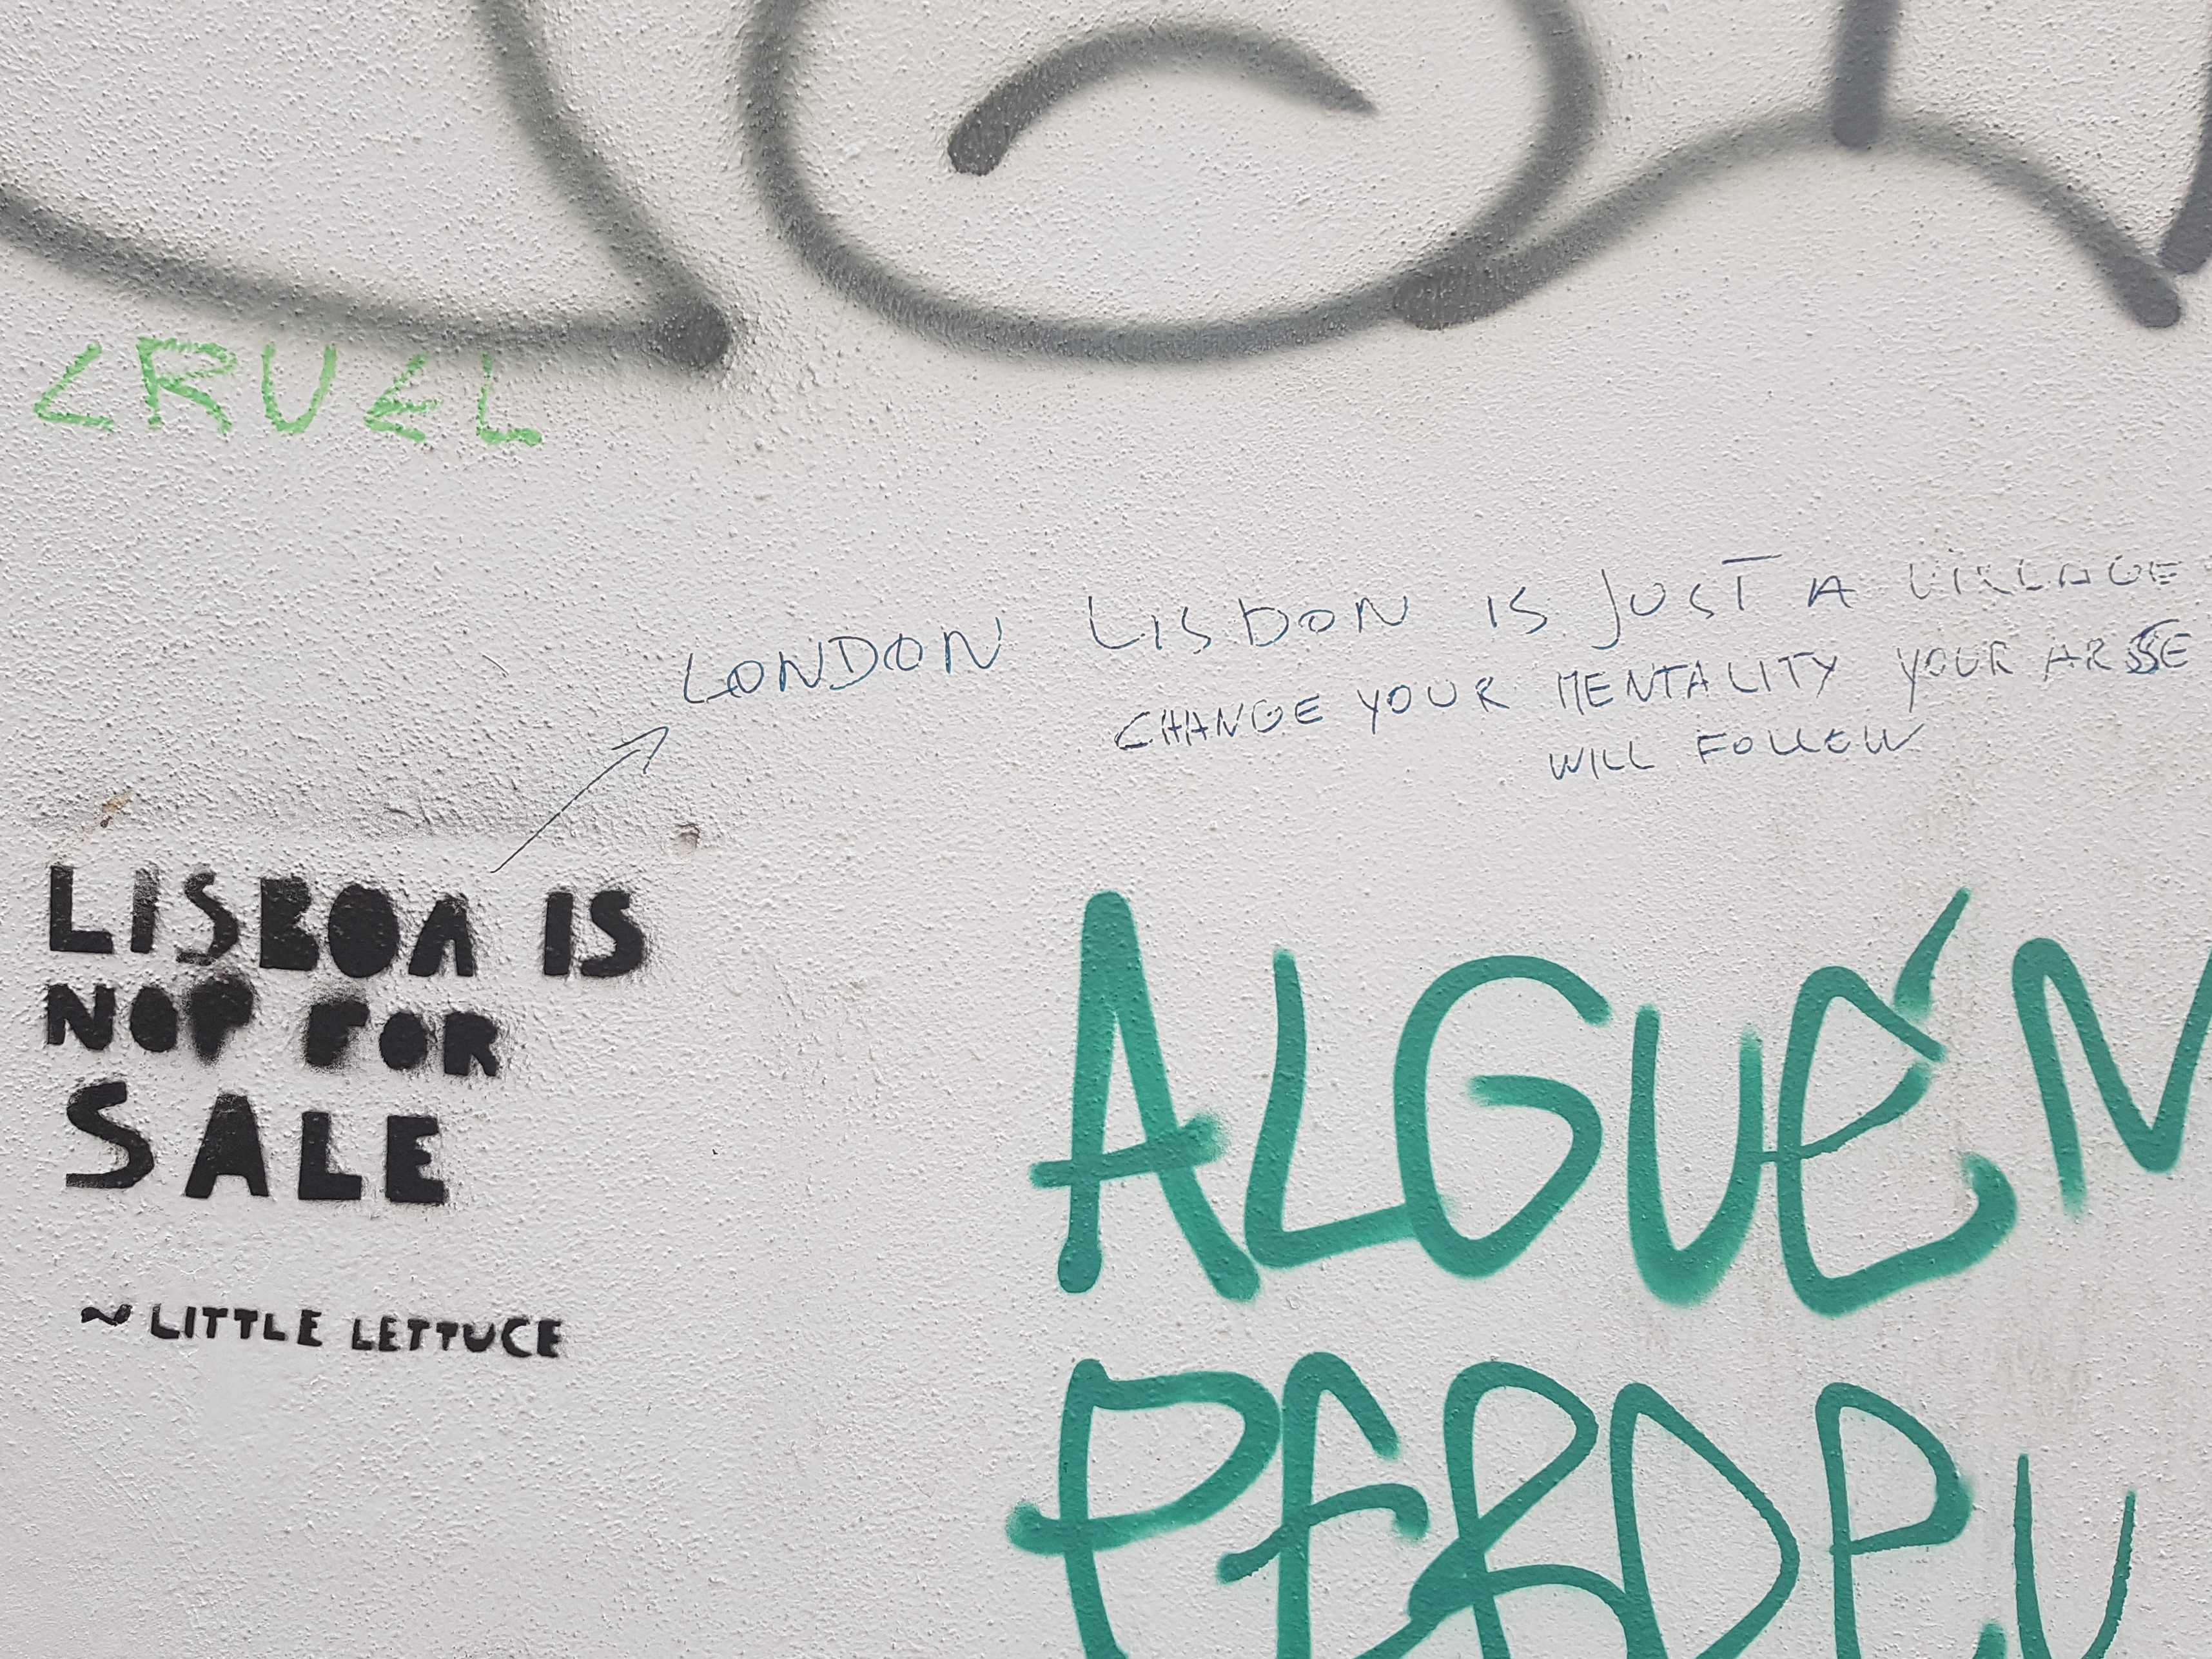 CRUEL
LONDON LISBON IS JUST A VILLAGE
CHANGE YOUR MENTALITY YOUR ARSE
WILL FOLLOW
LISBOA IS
NOT FOR
SALE
~ LITTLE LETTUCE
ALGUÉN
PERDEU